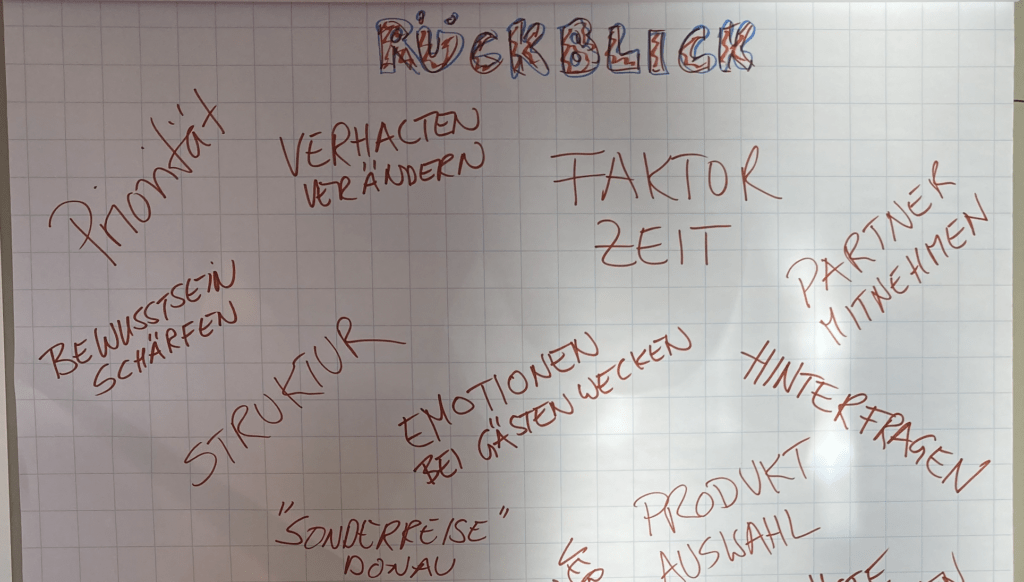 RÜCKBLICK
Priorität
VERHALTEN
VERÄNDERN
FAKTOR
ZEIT
PARTNER
MITNEHMEN
BEWUSSTSEIN
SCHÄRFEN
STRUKTUR
EMOTIONEN
BEI GÄSTEN WECKEN
HINTERFRAGEN
"SONDERREISE"
DONAU
PRODUKT
AUSWAHL